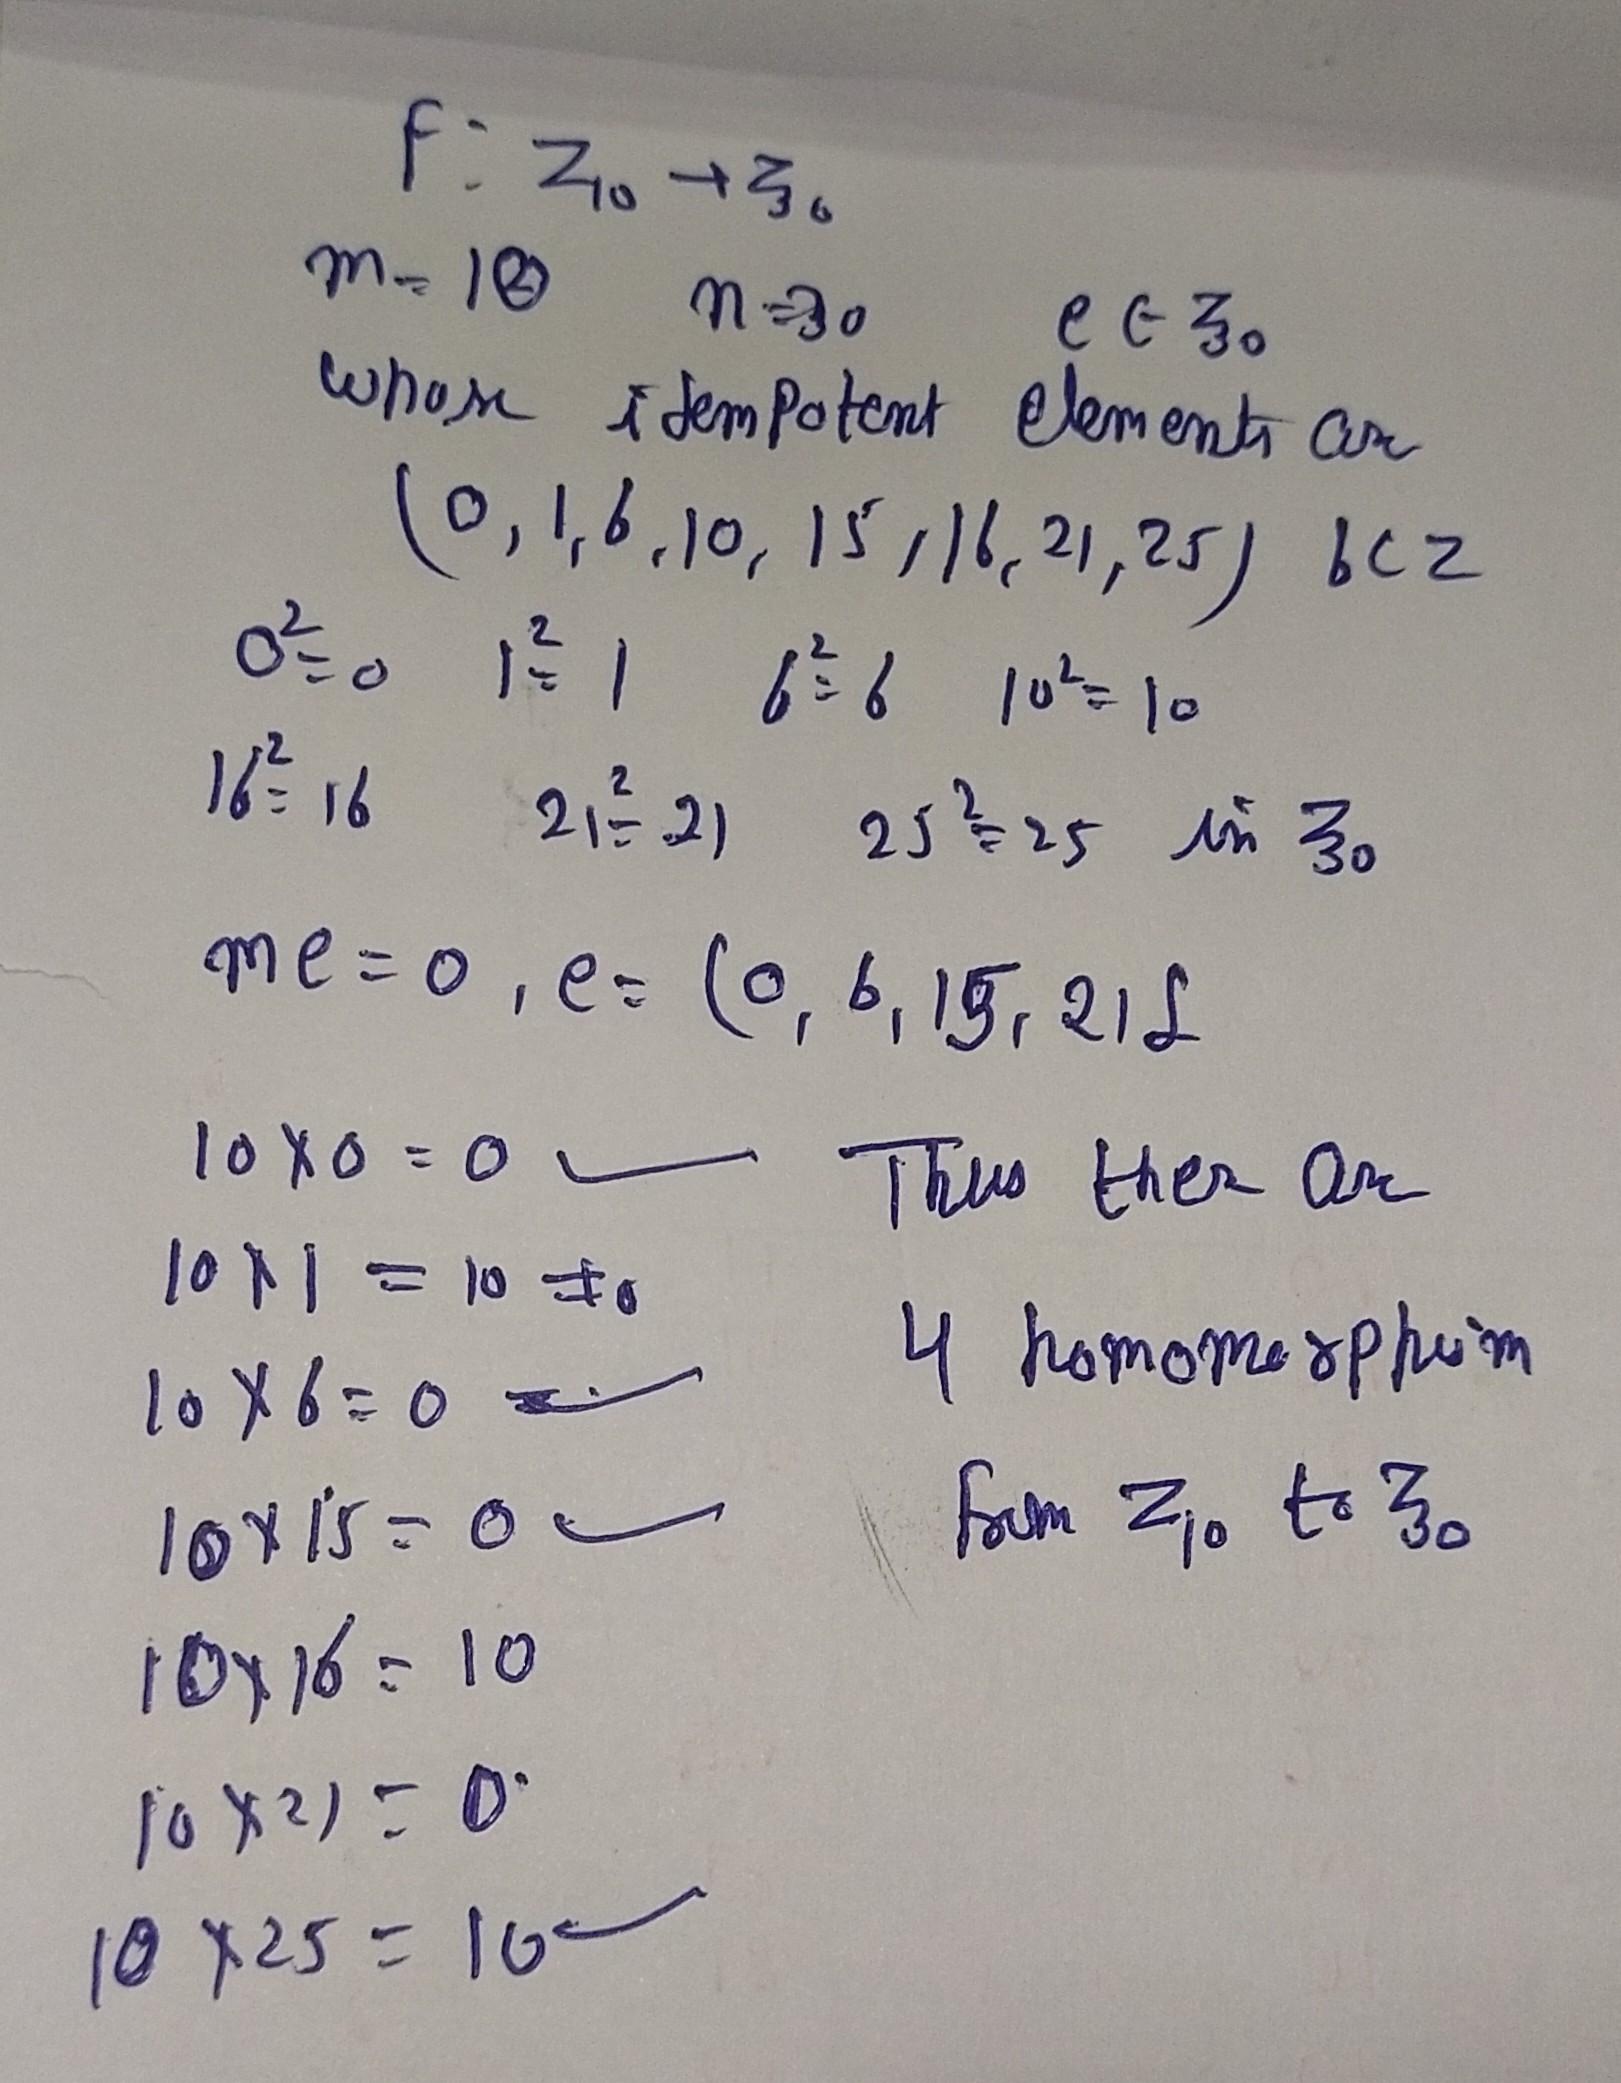 f: Z₁₀ → Z₃₀
m = 10 n = 30 e ∈ Z₃₀
whose idempotent elements are
(0, 1, 6, 10, 15, 16, 21, 25) bcz
0² = 0 1² = 1 6² = 6 10² = 10
16² = 16 21² = 21 25² = 25 in Z₃₀
me = 0, e = (0, 6, 15, 21}
10 x 0 = 0 ✓
10 x 1 = 10 ≠ 0
10 x 6 = 0 ✓
10 x 15 = 0 ✓
10 x 16 = 10
10 x 21 = 0
10 x 25 = 10 ✓
Thus ther are
4 homomorphism
from Z₁₀ to Z₃₀